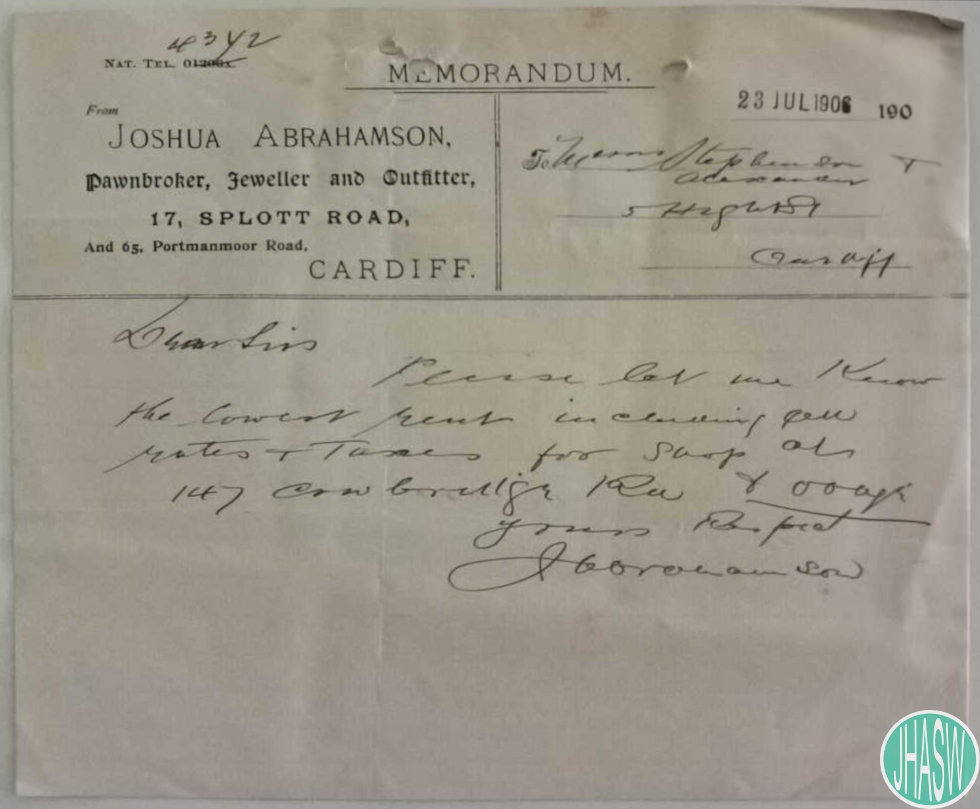 4342
NAT. TEL. 01200x.
MEMORANDUM.
23 JUL 1906 190
From
JOSHUA ABRAHAMSON,
Pawnbroker, Jeweller and Outfitter,
17, SPLOTT ROAD,
And 65, Portmanmoor Road,
CARDIFF.
To Messrs Stephenson &
Alexander
5 High St
Cardiff
Dear Sirs
Please let me Know
the lowest rent including all
rates & Taxes for Shop at
147 Cowbridge Rd &
yours Respect
J Abrahamson
JHASW